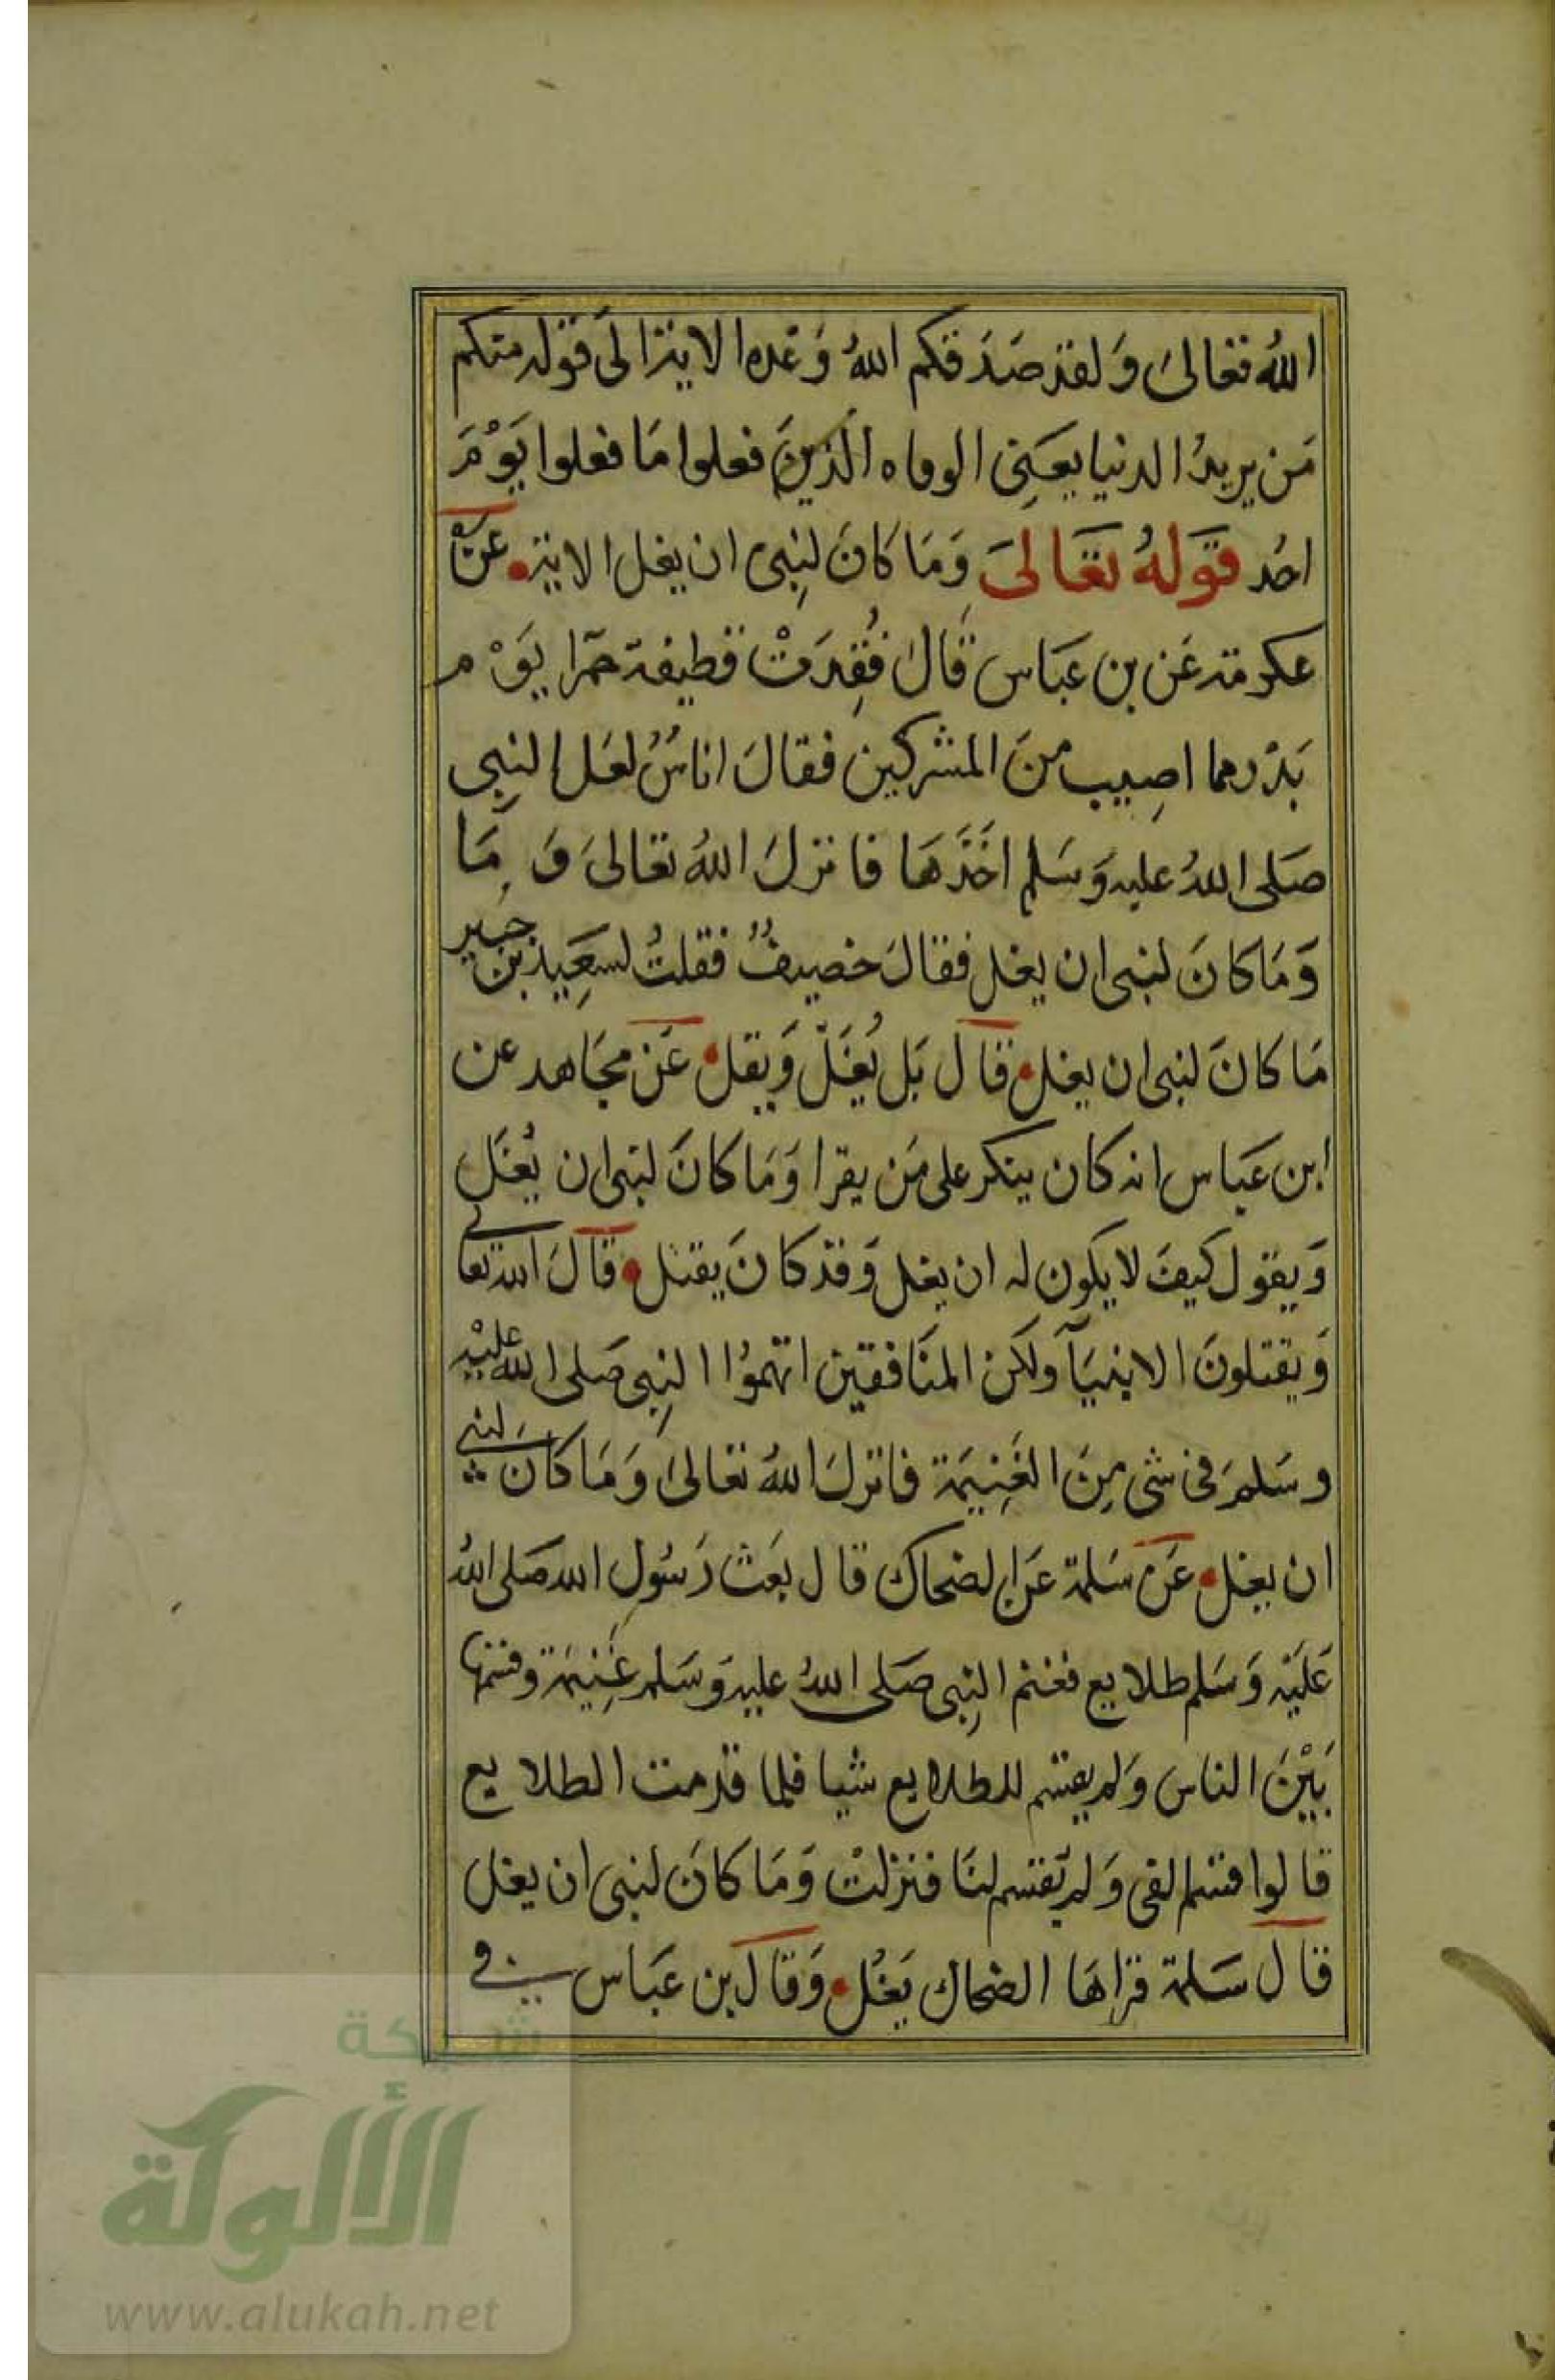 اللهُ تعالىَ وَلقد صَدَقكم اللهُ وَعده الاية الىَ قوله منكم
مَن يريدُ الدنيا يعَنِى الرماه الَّذينَ فعلوا مَا فعلوا يَوْمَ
احُد قَولهُ تعَالىَ وَمَا كانَ لِنبِى ان يغل الاية عَن
عكرمة عَن بن عبَاس قالَ فُقِدَتْ قطيفة حمرَا يَوْم
بَدْر مما اصِيب منَ المشركين فقالَ اناسٌ لعَل النبِى
صَلى اللهُ عليه وَسَلم اخَذَهَا فانزلَ اللهُ تعَالىَ وَمَا
وَمَا كانَ لنبى ان يغل فقالَ خصيفٌ فقلتُ لسَعِيد بن جبَير
مَا كانَ لنبى ان يغل قال بَل يُغَلّ وَيقل عَن مجَاهد عن
ابن عبَاس انه كان ينكر على مَن يقرا وَمَا كانَ لنبى ان يُغَل
وَيقول كيفَ لا يكون له ان يغل وَقد كانَ يقتل قالَ الله تعالى
وَيقتلونَ الانبيَآ ولكن المنَافقين اتهمُوا النبِى صَلى الله عليْه
وسَلمَ فى شى مِنَ الغَنِيمَة فانزلَ اللهُ تعَالىَ وَمَا كانَ لنبى
ان يغل عَن سَلمة عَن الضحاك قال بَعَث رَسُولِ الله صَلى اللهُ
عَليَه وَسَلم طلايع فغنم النبِى صَلى اللهُ عليه وَسَلم غَنِيمَة وقسَمها
بَيْنَ الناس وَلم يقسَم للطلايع شيا فلما قدمت الطلايع
قالوا قسَم الفى وَلم يَقسم لنَا فنزلتْ وَمَا كانَ لنبى ان يغل
قال سَلمة قراهَا الضحاك يَغُل وَقالَ بن عبَاس فى
شبكة
الألوكة
www.alukah.net